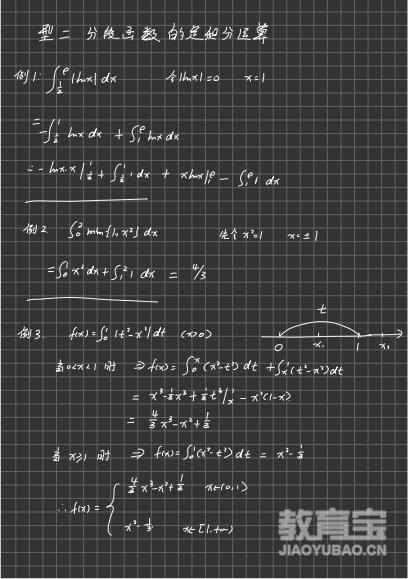 型二 分段函数的定积分运算
例1: ∫_{1/2}^{e} |lnx| dx 令|lnx|=0 x=1
= -∫_{1/2}^{1} lnx dx + ∫_{1}^{e} lnx dx
= -lnx·x|_{1/2}^{1} + ∫_{1/2}^{1} 1 dx + xlnx|_{1}^{e} - ∫_{1}^{e} 1 dx
例2. ∫_{0}^{2} min{1,x²} dx 先令 x²=1 x=±1
= ∫_{0}^{1} x² dx + ∫_{1}^{2} 1 dx = 4/3
例3. f(x)=∫_{0}^{1} |t²-x²| dt (x>0)
t
0 x₁ 1 x₁
当 0<x<1 时 ⇒ f(x)=∫_{0}^{x} (x²-t²) dt + ∫_{x}^{1} (t²-x²) dt
= x³-1/3x³+1/3t³|_{x}^{1} - x²(1-x)
= 4/3x³-x²+1/3
当 x≥1 时 ⇒ f(x)=∫_{0}^{1} (x²-t²) dt = x²-1/3
∴ f(x)= { 4/3x³-x²+1/3 x∈(0,1)
x²-1/3. x∈[1,+∞)
教育宝
JIAOYUBAO.CN